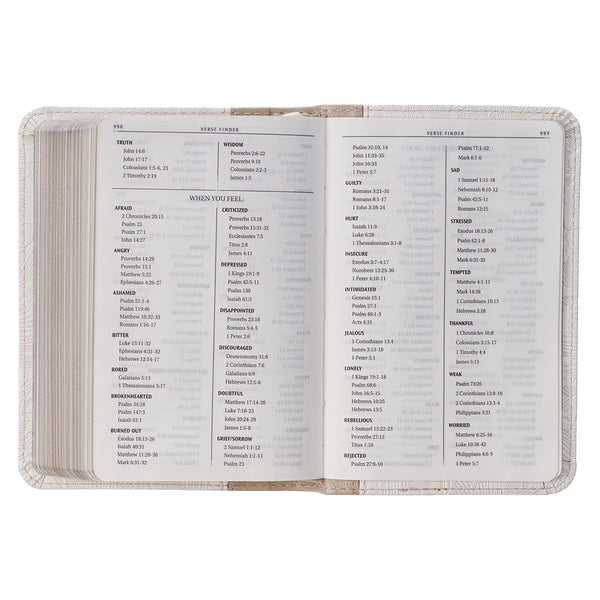 990
VERSE FINDER
TRUTH
John 14:6
John 17:17
Colossians 1:5-6, 23
2 Timothy 2:19
WISDOM
Proverbs 2:6-22
Proverbs 9:10
Colossians 2:2-3
James 1:5
WHEN YOU FEEL:
AFRAID
2 Chronicles 20:15
Psalm 23
Psalm 27:1
John 14:27
ANGRY
Proverbs 14:29
Proverbs 15:1
Matthew 5:22
Ephesians 4:26-27
ASHAMED
Psalm 51:1-4
Psalm 119:46
Matthew 10:32-33
Romans 1:16-17
BITTER
Luke 15:11-32
Ephesians 4:31-32
Hebrews 12:14-17
BORED
Galatians 5:13
1 Thessalonians 5:17
BROKENHEARTED
Psalm 34:18
Psalm 147:3
Isaiah 61:1
BURNED OUT
Exodus 18:13-26
Isaiah 40:31
Matthew 11:28-30
Mark 6:31-32
CRITICIZED
Proverbs 13:18
Proverbs 15:31-32
Ecclesiastes 7:5
Titus 2:8
James 4:11
DEPRESSED
1 Kings 19:1-9
Psalm 42:5-11
Psalm 130
Isaiah 61:3
DISAPPOINTED
Proverbs 23:18
Romans 5:4-5
1 Peter 2:6
DISCOURAGED
Deuteronomy 31:8
2 Corinthians 7:6
Galatians 6:9
Hebrews 12:5-6
DOUBTFUL
Matthew 17:14-20
Luke 7:18-23
John 20:24-29
GRIEF/SORROW
2 Samuel 1:1-12
Nehemiah 1:1-11
Psalm 23
VERSE FINDER
991
Psalm 31:10, 14
John 11:33-35
John 16:33
1 Peter 5:7
GUILTY
Romans 3:21-31
Romans 8:1-17
1 John 3:18-24
HURT
Isaiah 11:9
Luke 6:28
1 Thessalonians 3:1-8
INSECURE
Exodus 3:7–4:17
Numbers 13:25-30
1 Peter 4:10-11
INTIMIDATED
Genesis 15:1
Psalm 27:1
Psalm 46:1-3
Acts 4:31
JEALOUS
1 Corinthians 13:4
James 3:13-18
1 Peter 2:1
LONELY
1 Kings 19:1-18
Psalm 68:6
John 16:5-15
Hebrews 10:25
Hebrews 13:5
REBELLIOUS
1 Samuel 15:22-23
Proverbs 27:12
Titus 1:10
REJECTED
Psalm 27:9-10
Psalm 77:1-12
Mark 6:1-6
SAD
1 Samuel 1:15-18
Nehemiah 8:10-12
Psalm 42:5-11
Romans 12:15
STRESSED
Exodus 18:13-26
Psalm 62:1-8
Matthew 11:28-30
Mark 6:31-32
TEMPTED
Matthew 4:1-11
Mark 14:38
1 Corinthians 10:13
Hebrews 2:18
THANKFUL
1 Chronicles 16:8
Colossians 3:15-17
1 Timothy 4:4
James 5:13
WEAK
Psalm 73:26
2 Corinthians 12:8-10
2 Corinthians 13:3-4
Philippians 3:21
WORRIED
Matthew 6:25-34
Luke 10:38-42
Philippians 4:6-9
1 Peter 5:7